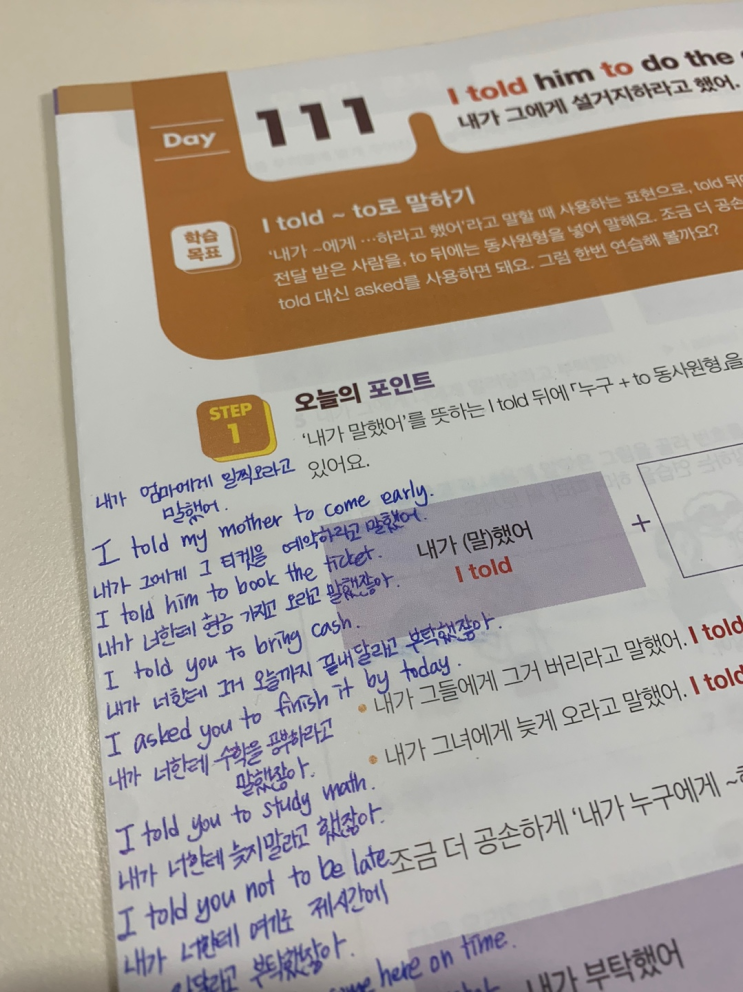 Day 111
I told him to do the
내가 그에게 설거지하라고 했어.
학습
목표
I told ~ to로 말하기
'내가 ~에게 …하라고 했어'라고 말할 때 사용하는 표현으로, told 뒤
전달 받은 사람을, to 뒤에는 동사원형을 넣어 말해요. 조금 더 공손
told 대신 asked를 사용하면 돼요. 그럼 한번 연습해 볼까요?
STEP
1
오늘의 포인트
'내가 말했어'를 뜻하는 I told 뒤에 「누구 + to 동사원형」을
있어요.
내가 엄마에게 일찍오라고
말했어.
I told my mother to come early.
내가 그에게 그 티켓을 예약하라고 말했어.
I told him to book the ticket.
내가 너한테 현금 가지고 오라고 말했잖아.
I told you to bring cash.
내가 너한테 그거 오늘까지 끝내달라고 부탁했잖아.
I asked you to finish it by today.
내가 너한테 수학을 공부하라고
말했잖아.
I told you to study math.
내가 너한테 늦지말라고 했잖아.
I told you not to be late.
내가 너한테 여기로 제시간에
달라고 부탁했잖아.
here on time.
내가 (말)했어
I told
+
• 내가 그들에게 그거 버리라고 말했어. I told
• 내가 그녀에게 늦게 오라고 말했어. I told
조금 더 공손하게 '내가 누구에게 ~
내가 부탁했어